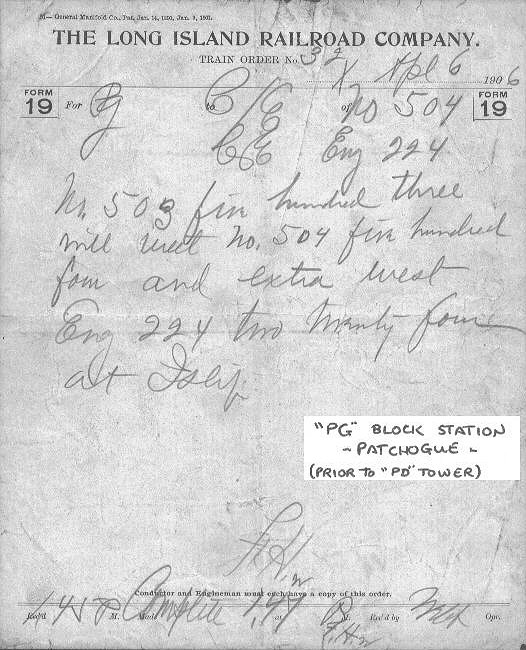 — General Manifold Co., Pat. Jan. 14, 1890, Jan. 9, 1901.
THE LONG ISLAND RAILROAD COMPANY.
TRAIN ORDER No. 32 Apl 6 1906
FORM 19 For Pg to C/E of No 504 FORM 19
C&E Eng 224
No. 503 five hundred three
will meet No. 504 five hundred
four and extra west
Eng 224 two twenty four
at Islip
"PG" BLOCK STATION
- PATCHOGUE -
(PRIOR TO "PD" TOWER)
F.H.
Conductor and Engineman must each have a copy of this order.
Rec'd M. Made Complete 147 P M. Rec'd by Opr.